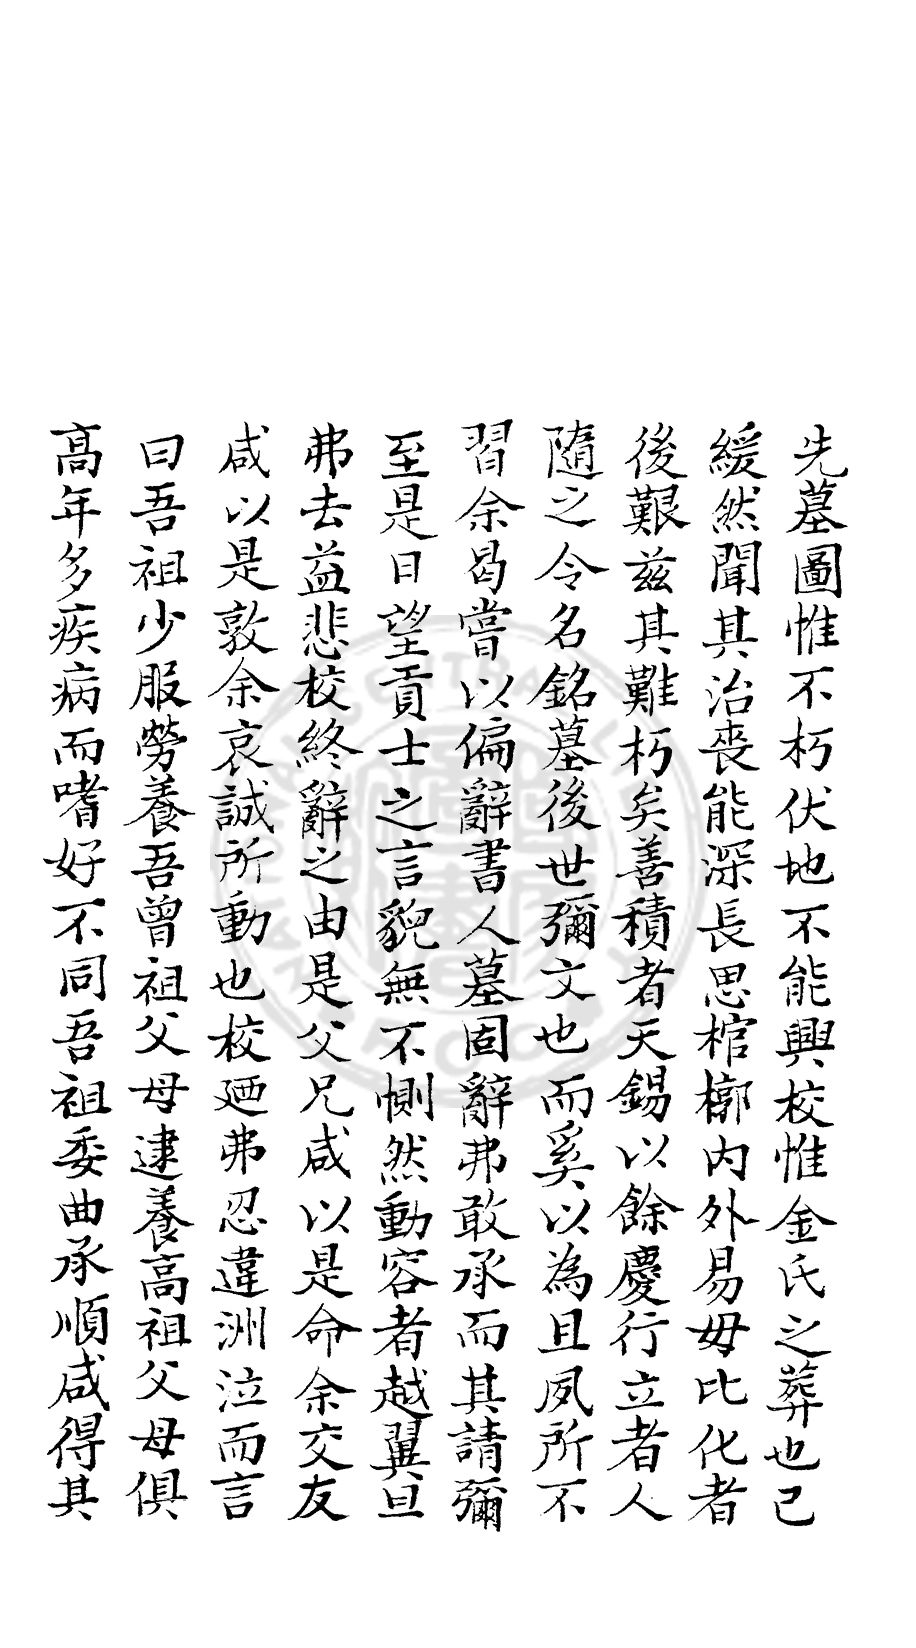 先墓圖惟不朽伏地不能興校惟金氏之葬也已
緩然聞其治喪能深長思棺槨內外易毋比化者
後艱兹其難朽矣善積者天錫以餘慶行立者人
隨之令名銘墓後世彌文也而奚以為且夙所不
習余曷嘗以偏辭書人墓固辭弗敢承而其請彌
至是日望貢士之言貌無不惻然動容者越翼旦
弗去益悲校終辭之由是父兄咸以是命余交友
咸以是敦余哀誠所動也校廼弗忍違洲泣而言
曰吾祖少服勞養吾曾祖父母逮養高祖父母俱
高年多疾病而嗜好不同吾祖委曲承順咸得其